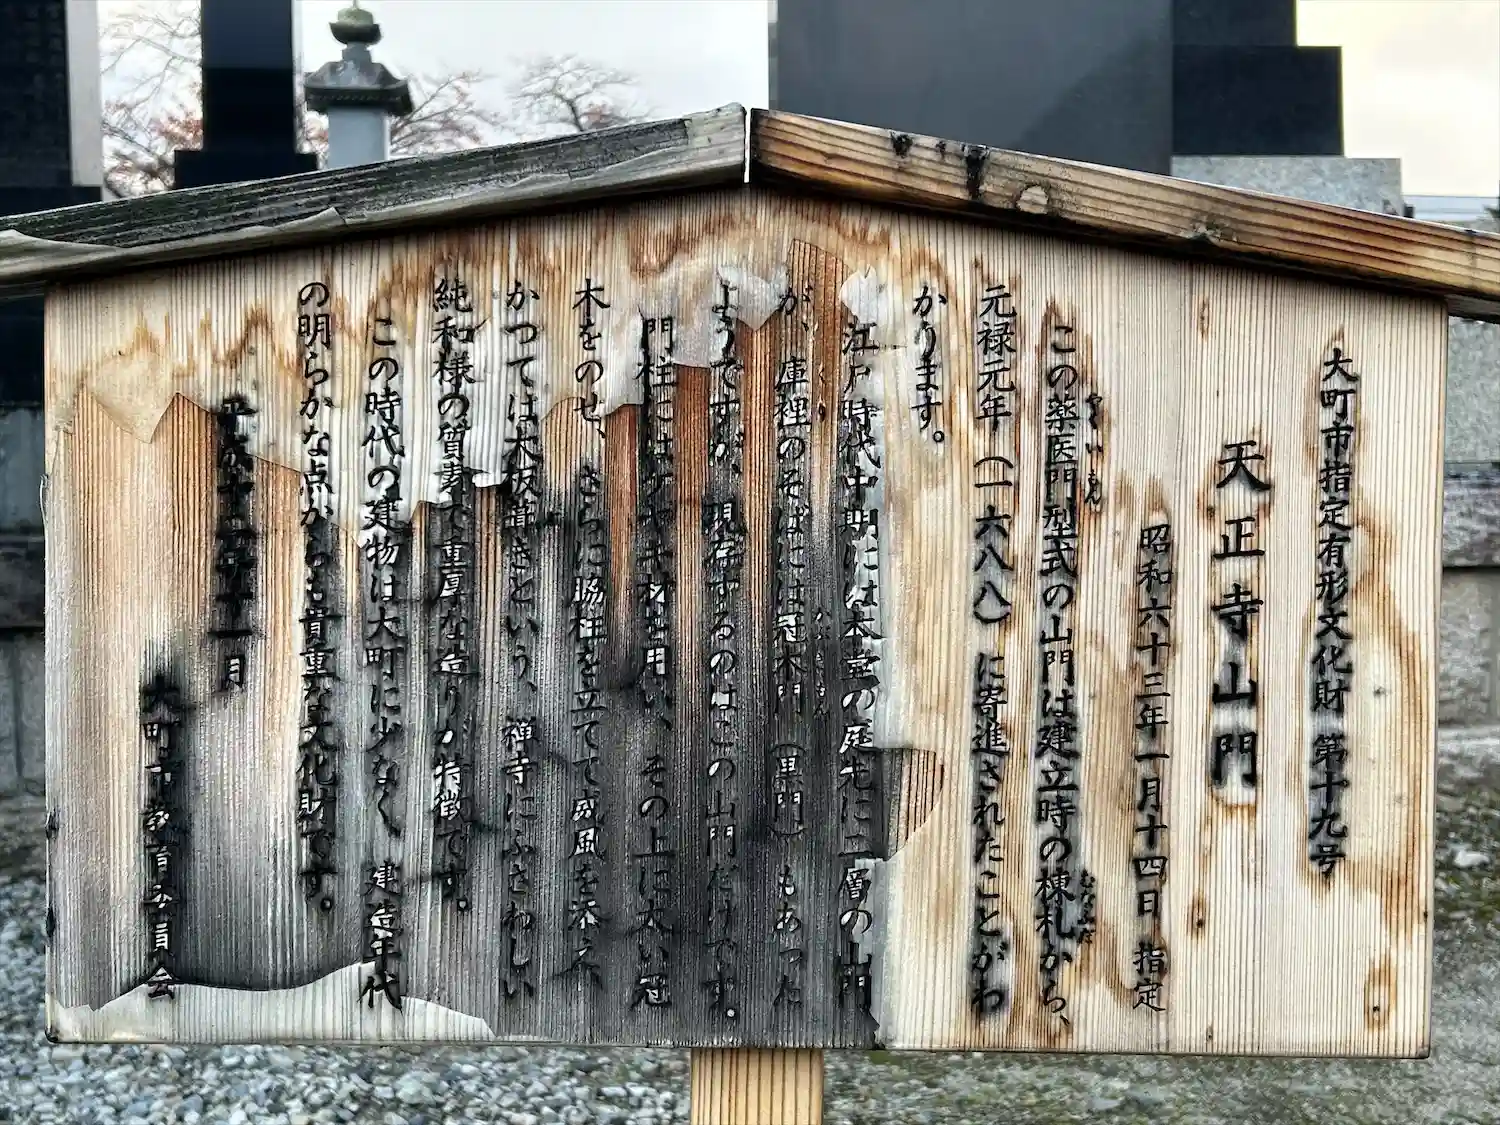 大町市指定有形文化財 第十九号
天正寺山門
昭和六十三年一月十四日 指定
この薬医門型式の山門は建立時の棟札から、
やくいもん
むなふだ
元禄元年（一六八八）に寄進されたことがわ
かります。
江戸時代中期には本堂の庭先に二層の山門
が、庫裡のそばには冠木門（黒門）もあった
ようですが、現存するのはこの山門だけです。
門柱にはケヤキ材を用い、その上に太い冠
木をのせ、さらに脇柱を立てて威風を添え、
かつては木板葺きという、禅寺にふさわしい
純和様の質素で重厚な造りが特徴です。
この時代の建物は大町に少なく、建造年代
の明らかな点からも貴重な文化財です。
平成十二年十一月
大町市教育委員会